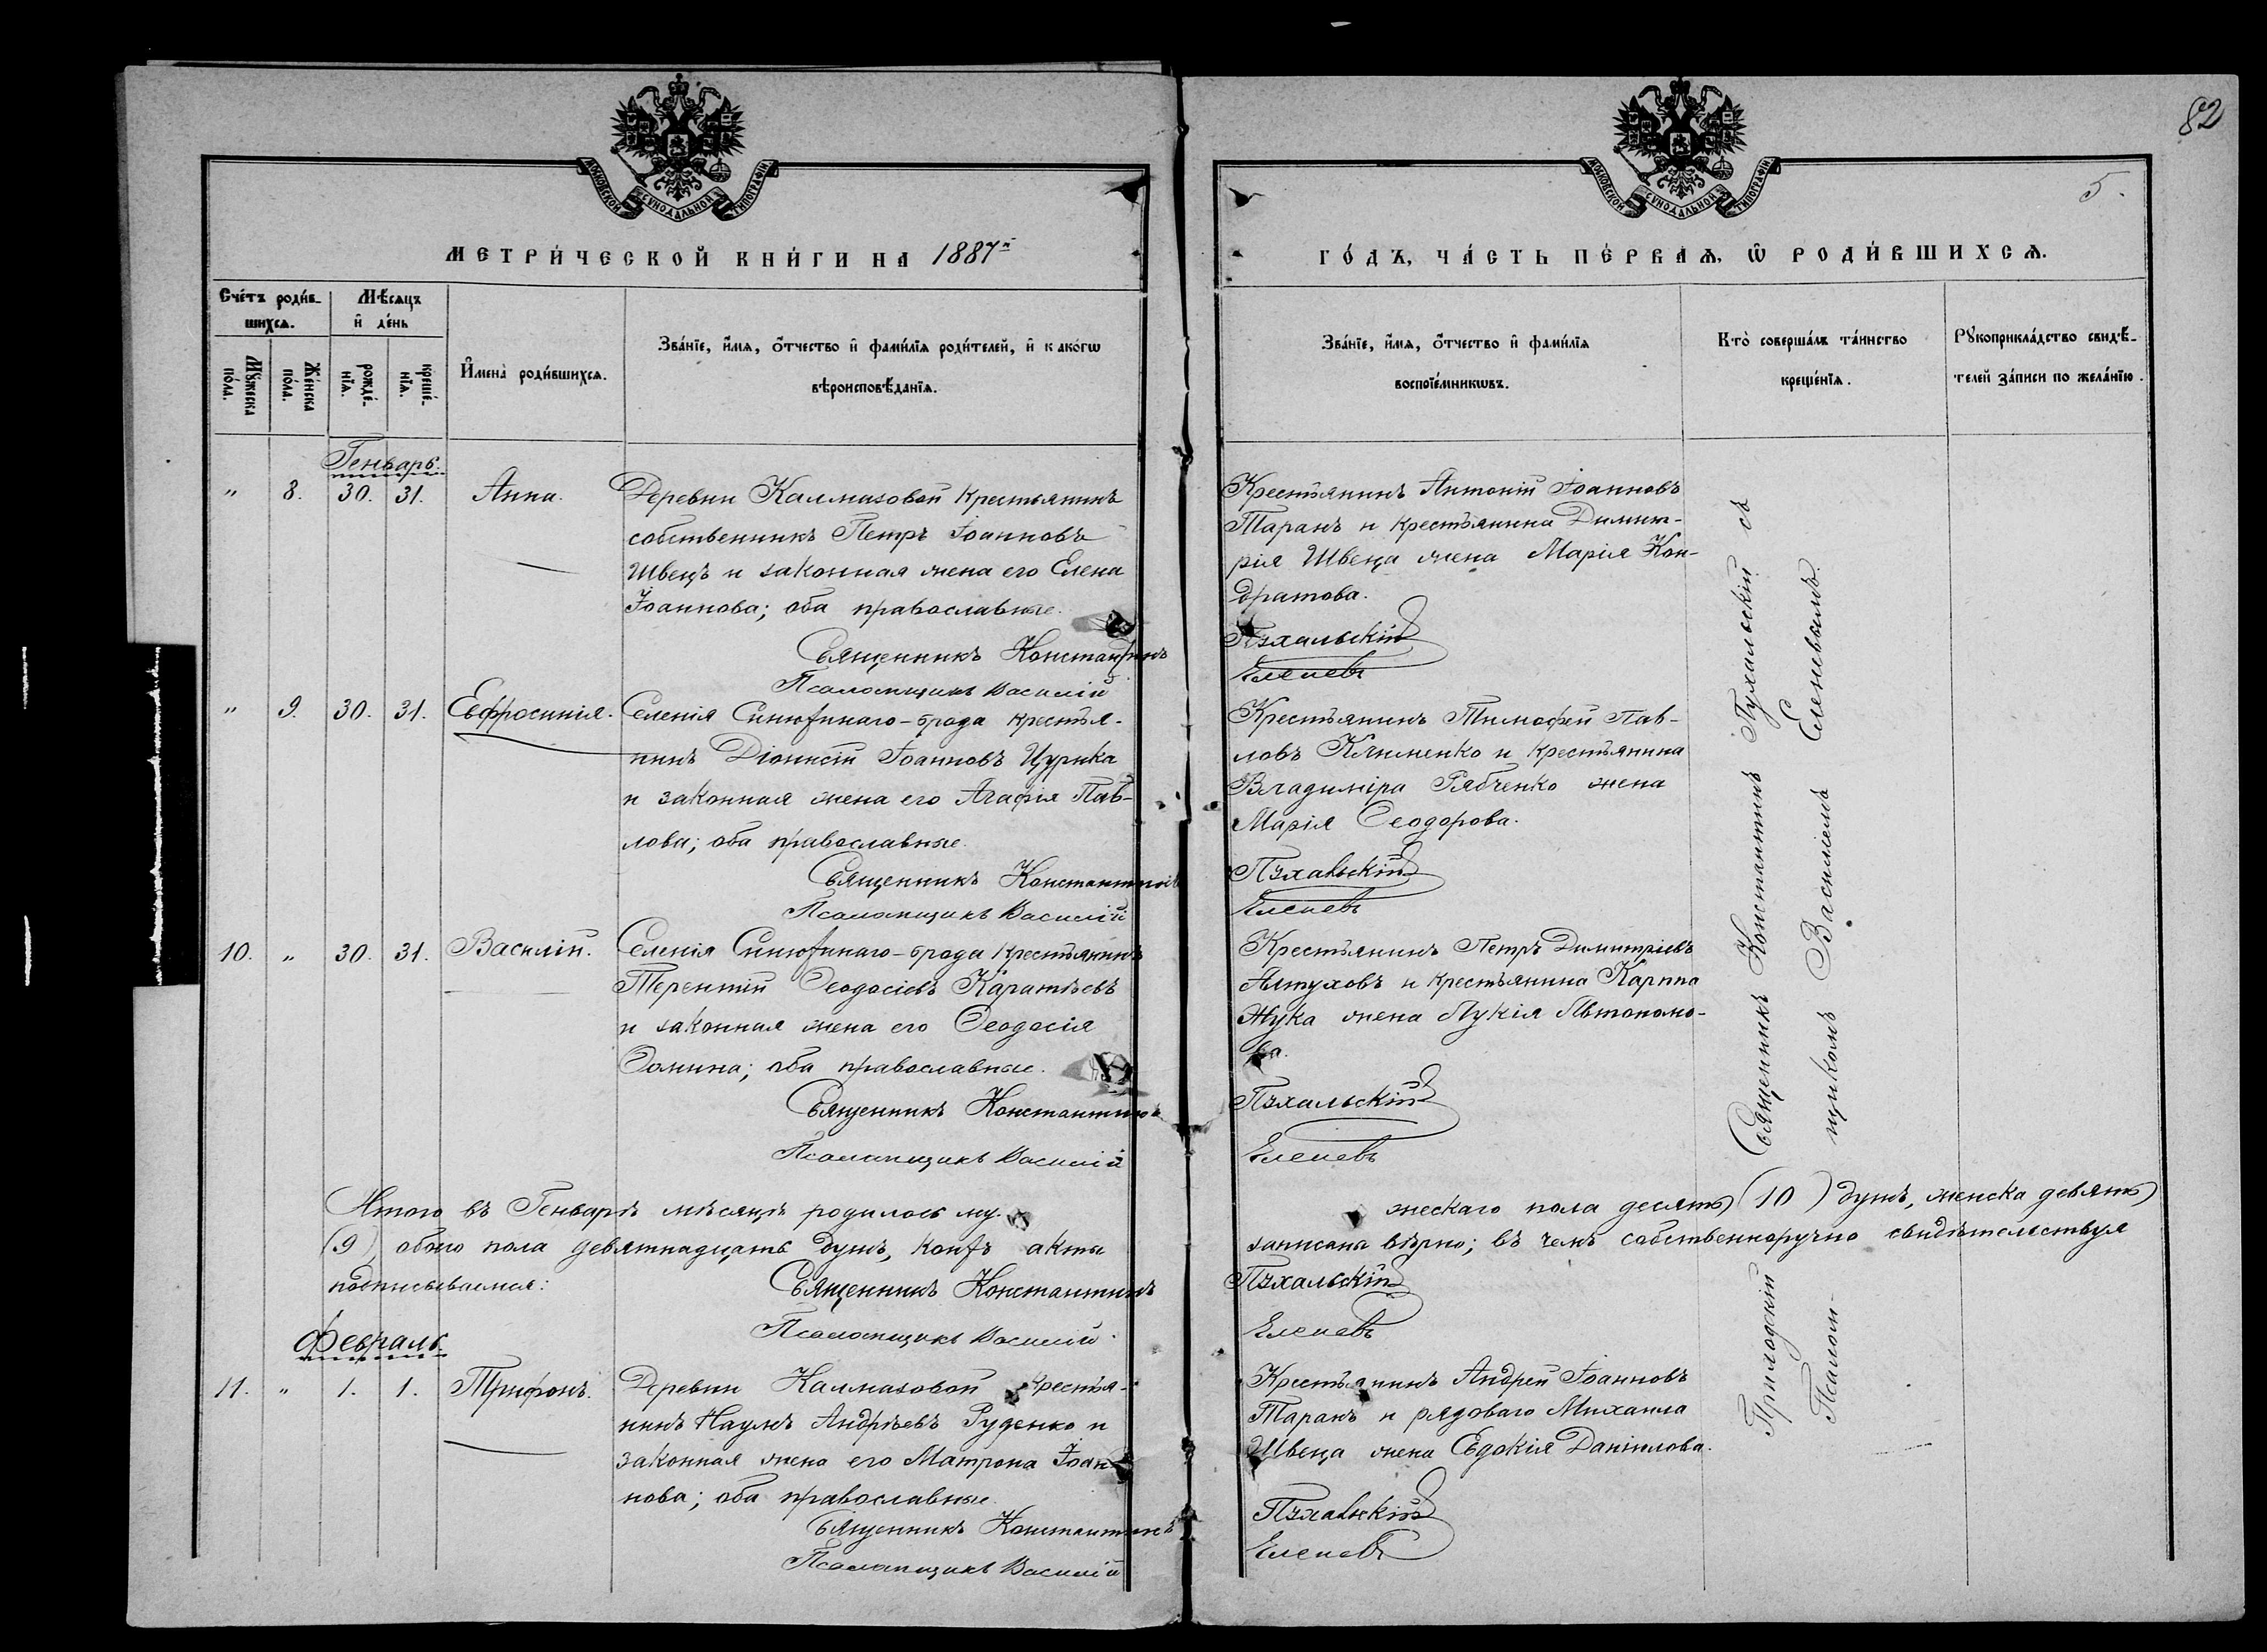 82
5.
МОСКОВСКОЙ СѴНОДАЛЬНОЙ ТИПОГРАФІИ
МОСКОВСКОЙ СѴНОДАЛЬНОЙ ТИПОГРАФІИ
МЕТРИ́ЧЕСКОЙ КНИ́ГИ НА 1887й
ГО́ДЪ, ЧА́СТЬ ПЕ́РВАѦ, Ѡ РОДИ́ВШИХСѦ.
Сче́тъ роди́в-
шихсѧ.
Мѣ́сѧцъ
и҆ де́нь
Мꙋ́жеска по́ла.
Же́нска по́ла.
рожде́-
нїѧ.
креще́-
нїѧ.
И҆мена̀ роди́вшихсѧ.
Зва́нїе, и҆́мѧ, ѻ҆́тчество и҆ фами́лїѧ роди́телей, и҆ како́гѡ
вѣроисповѣ́данїѧ.
Зва́нїе, и҆́мѧ, ѻ҆́тчество и҆ фами́лїѧ
воспрїе́мникѡвъ.
Кто̀ соверша́лъ та́инство
креще́нїѧ.
Рꙋкоприкла́дство свидѣ́-
телей за́писи по жела́нїю.
Генварь.
" 8. 30. 31. Анна.
Деревни Калмазовой крестьянинъ
собственникъ Петръ Іоанновъ
Швецъ и законная жена его Елена
Іоаннова; оба православные.
Священникъ Константинъ
Псаломщикъ Василій
Крестьянинъ Антоній Іоанновъ
Таранъ и крестьянина Димит-
рія Швеца жена Марія Кон-
дратова.
Пухальскій
Еленевъ
" 9. 30. 31. Евфросинія.
Селенія Синюхинаго-брода крестья-
нинъ Діонисій Іоанновъ Цурика
и законная жена его Агафія Пав-
лова; оба православные.
Священникъ Константинъ
Псаломщикъ Василій
Крестьянинъ Тимофей Пав-
ловъ Клименко и крестьянина
Владиміра Рябченко жена
Марія Ѳеодорова.
Пухальскій
Еленевъ
10. " 30. 31. Василій.
Селенія Синюхинаго-брода крестьянинъ
Терентій Ѳеодосіевъ Каратѣевъ
и законная жена его Ѳеодосія
Ѳомина; оба православные.
Священникъ Константинъ
Псаломщикъ Василій
Крестьянинъ Петръ Димитріевъ
Алтуховъ и крестьянина Карпа
Жука жена Лукія Автономо-
ва.
Пухальскій
Еленевъ
Итого въ Генварѣ мѣсяцѣ родилось му-
жескаго пола десять (10) душъ, женска девять
(9) обоего пола девятнадцать душъ, коихъ акты
записаны вѣрно; въ чемъ собственноручно свидѣтельствуя
подписываемся:
Священникъ Константинъ
Псаломщикъ Василій
Пухальскій
Еленевъ
Февраль.
11. " 1. 1. Трифонъ.
Деревни Калмазовой крестья-
нинъ Наумъ Андреевъ Руденко и
законная жена его Матрона Іоан-
нова; оба православные.
Священникъ Константинъ
Псаломщикъ Василій
Крестьянинъ Андрей Іоанновъ
Таранъ и рядоваго Михаила
Швеца жена Евдокія Даніилова.
Пухальскій
Еленевъ
Священникъ Константинъ Пухальскій съ
щикомъ Василіемъ Еленевымъ.
Приходскій
Псалом-